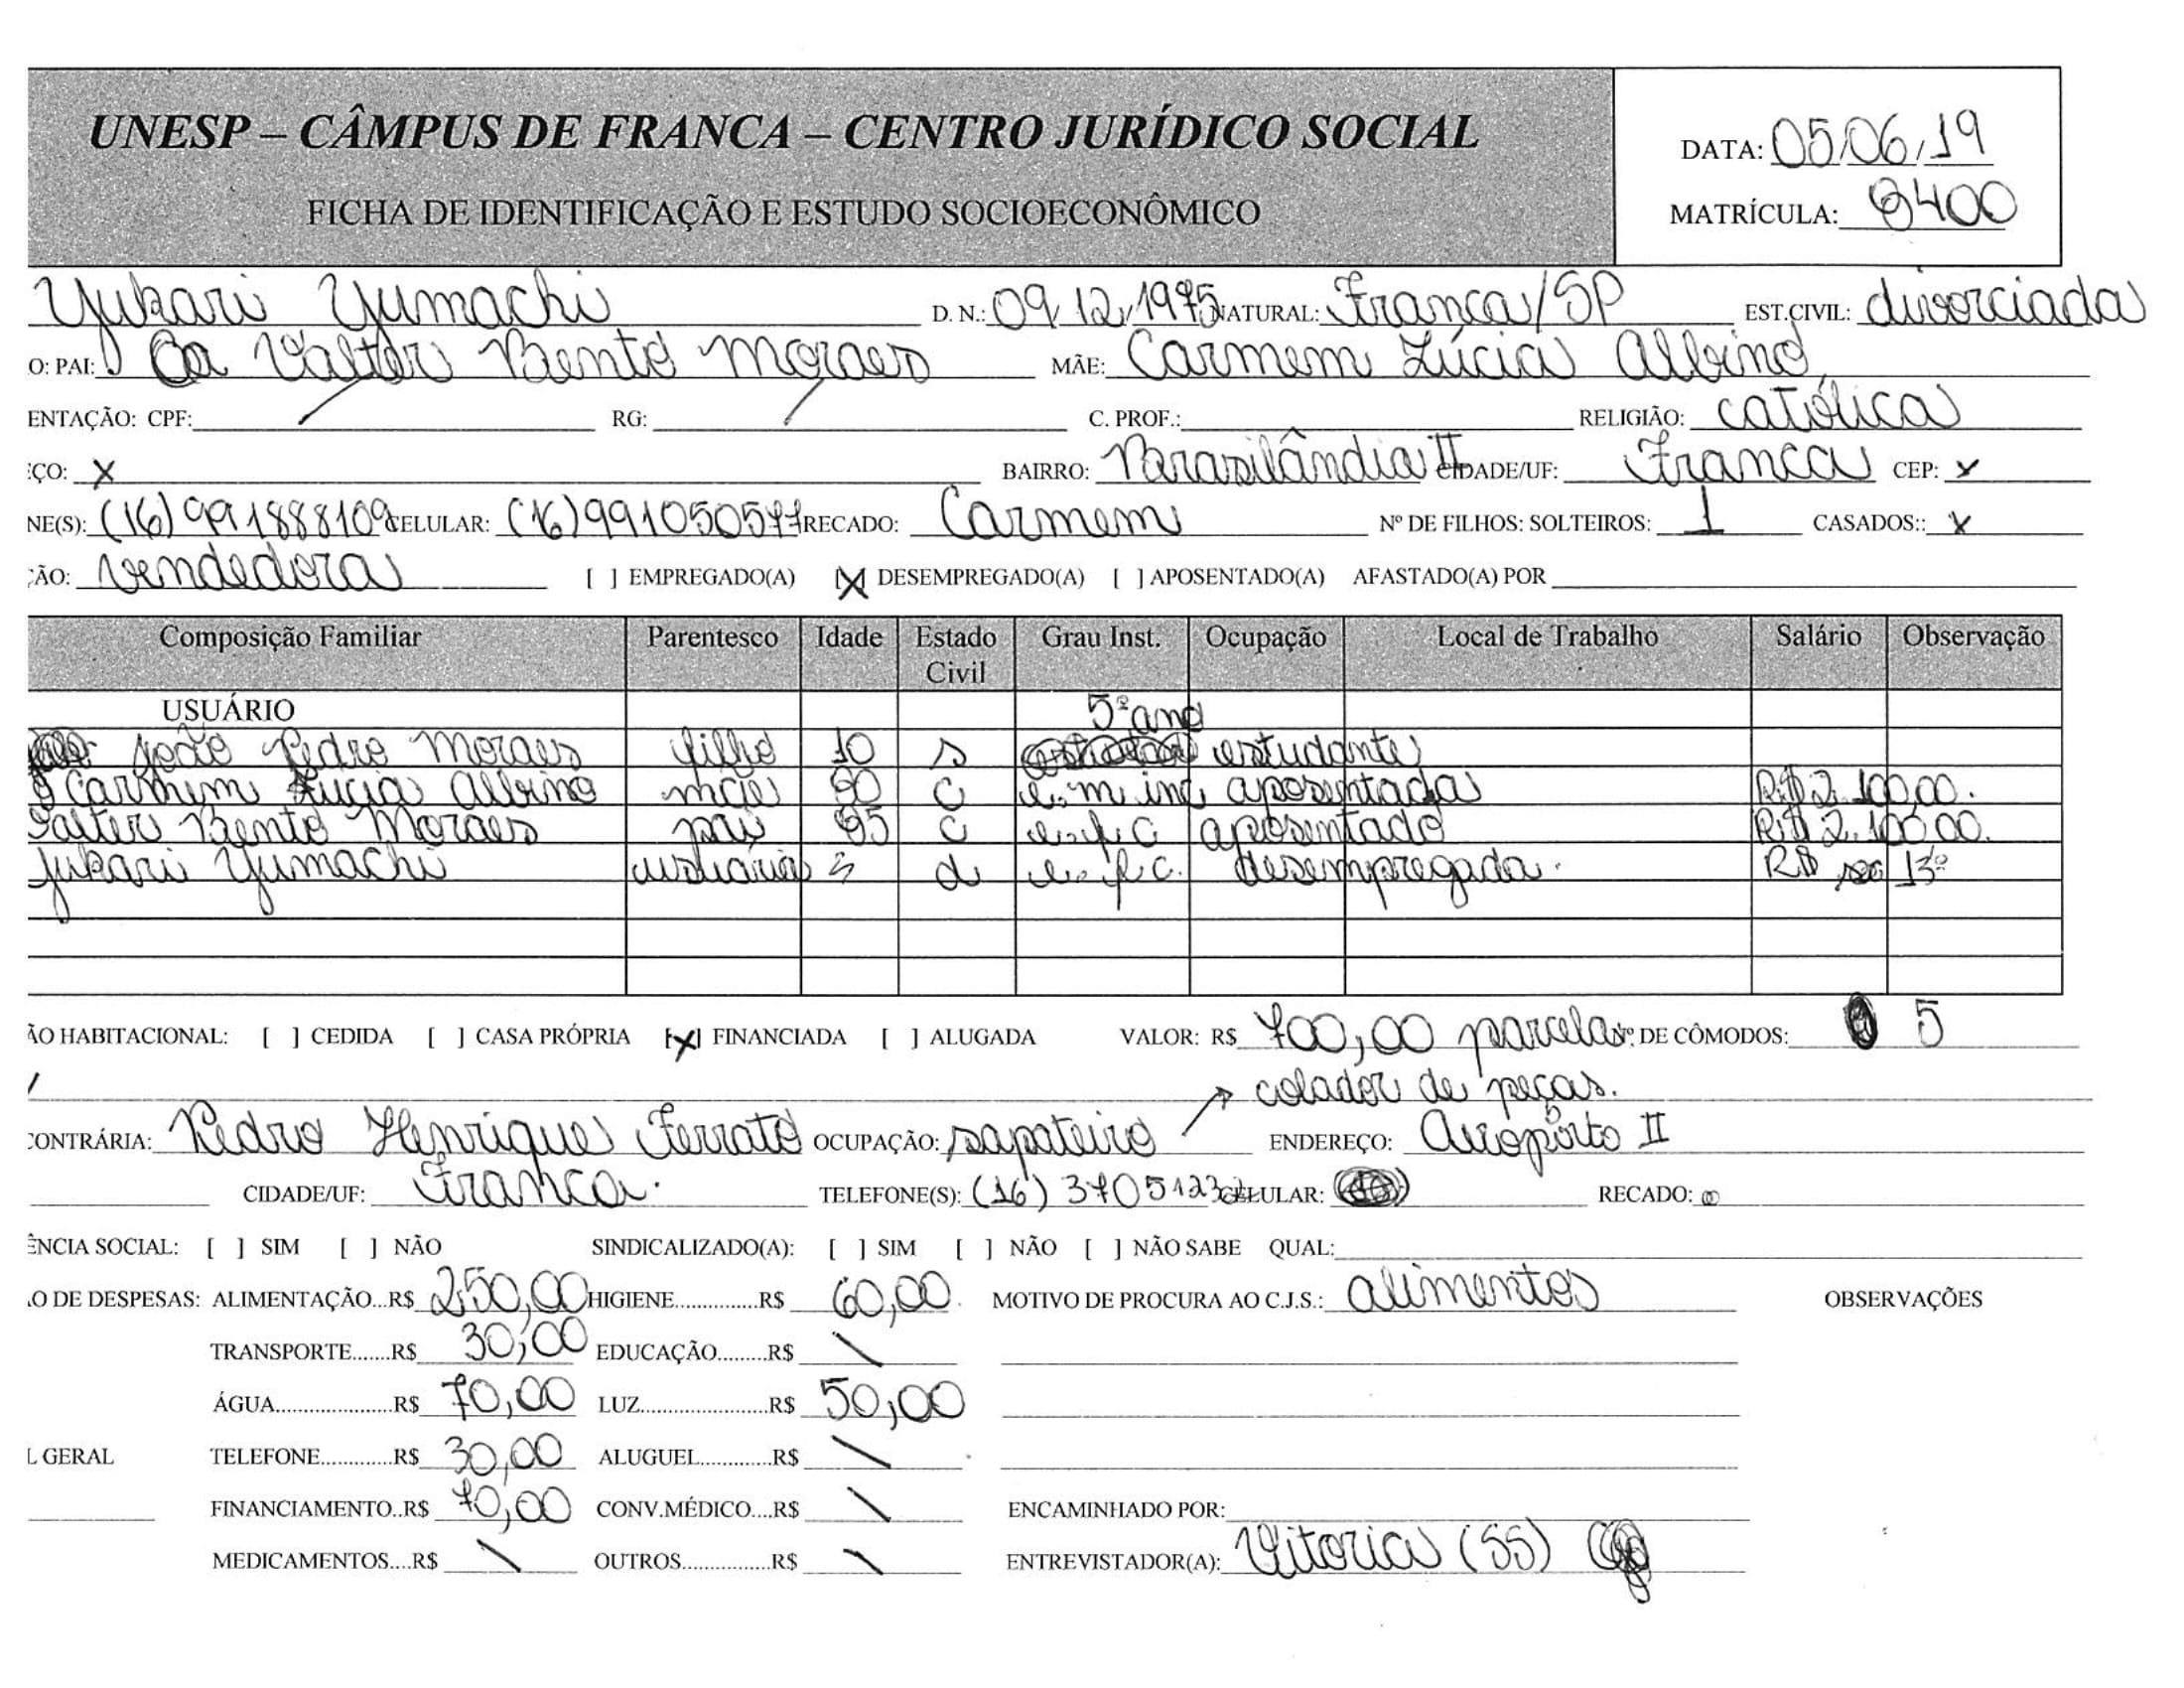 UNESP – CÂMPUS DE FRANCA – CENTRO JURÍDICO SOCIAL
DATA: 05/06/19
FICHA DE IDENTIFICAÇÃO E ESTUDO SOCIOECONÔMICO
MATRÍCULA: 8400
Yukari Yumachi D. N.: 09/12/1975 NATURAL: Franca/SP EST.CIVIL: divorciada
O: PAI: Valter Bento Moraes MÃE: Carmem Lúcia Albino
ENTAÇÃO: CPF: / RG: / C. PROF.: RELIGIÃO: católica
ÇO: X BAIRRO: Brasilândia II CIDADE/UF: Franca CEP: x
NE(S): (16) 991888109 CELULAR: (16) 991050577 RECADO: Carmem Nº DE FILHOS: SOLTEIROS: 1 CASADOS:: x
ÇÃO: vendedora [ ] EMPREGADO(A) [X] DESEMPREGADO(A) [ ] APOSENTADO(A) AFASTADO(A) POR
Composição Familiar Parentesco Idade Estado Civil Grau Inst. Ocupação Local de Trabalho Salário Observação
USUÁRIO 5º ano
João Pedro Moraes filho 10 s estudante
Carmem Lúcia Albino mãe c e.m inc aposentada R$ 2.100,00.
Valter Bento Moraes pai c e.f.c aposentado R$ 2.100,00.
Yukari Yumachi usuária d e.f.c. desempregada. R$ 13º
ÃO HABITACIONAL: [ ] CEDIDA [ ] CASA PRÓPRIA [X] FINANCIADA [ ] ALUGADA VALOR: R$ 700,00 parcela Nº. DE CÔMODOS: 5
/ → colador de peças.
CONTRÁRIA: Pedro Henrique Ferrato OCUPAÇÃO: sapateiro ENDEREÇO: Aeroporto II
CIDADE/UF: Franca. TELEFONE(S): (16) 3705123 CELULAR: RECADO:
ÊNCIA SOCIAL: [ ] SIM [ ] NÃO SINDICALIZADO(A): [ ] SIM [ ] NÃO [ ] NÃO SABE QUAL:
ÃO DE DESPESAS: ALIMENTAÇÃO...R$ 250,00 HIGIENE..............R$ 60,00 MOTIVO DE PROCURA AO C.J.S.: alimentos OBSERVAÇÕES
TRANSPORTE.......R$ 30,00 EDUCAÇÃO.........R$ \
ÁGUA.....................R$ 70,00 LUZ.......................R$ 50,00
L GERAL TELEFONE.............R$ 30,00 ALUGUEL.............R$ \
FINANCIAMENTO..R$ 70,00 CONV.MÉDICO....R$ \ ENCAMINHADO POR:
MEDICAMENTOS....R$ \ OUTROS................R$ \ ENTREVISTADOR(A): Vitoria (SS)